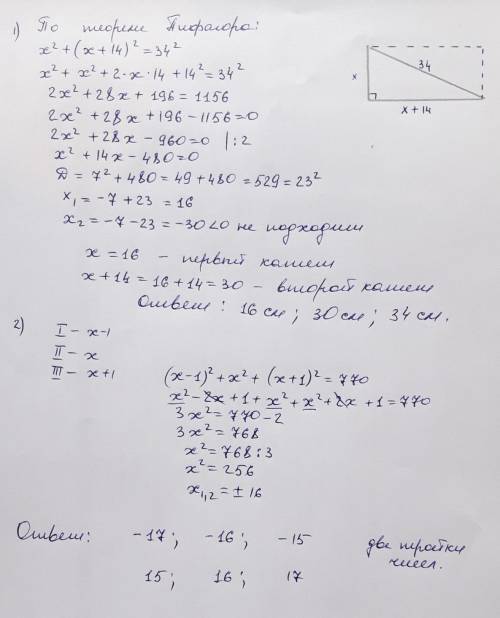 1) По теореме Пифагора:
x² + (x + 14)² = 34²
x² + x² + 2·x·14 + 14² = 34²
2x² + 28x + 196 = 1156
2x² + 28x + 196 − 1156 = 0
2x² + 28x − 960 = 0 | : 2
x² + 14x − 480 = 0
D = 7² + 480 = 49 + 480 = 529 = 23²
x₁ = −7 + 23 = 16
x₂ = −7 − 23 = −30 < 0 не подходит
x
34
x + 14
x = 16 – первый катет
x + 14 = 16 + 14 = 30 – второй катет
Ответ: 16 см; 30 см; 34 см.
2) I – x-1
II – x
III – x+1
(x-1)² + x² + (x+1)² = 770
x² − 2x + 1 + x² + x² + 2x + 1 = 770
3x² = 770 − 2
3x² = 768
x² = 768 : 3
x² = 256
x₁,₂ = ± 16
Ответ: -17; -16; -15
15; 16; 17
две тройки
чисел.